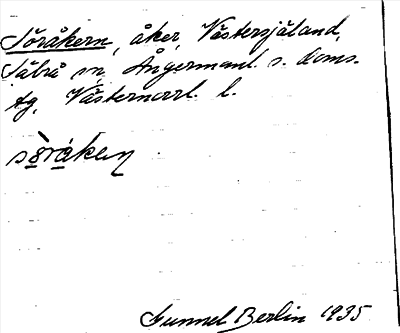 Söråkern, åker, Västersjäland,
Säbrå sn, Ångermanl. s. doms.
tg, Västernorrl. l.
söråken
Gunnel Berlin 1935